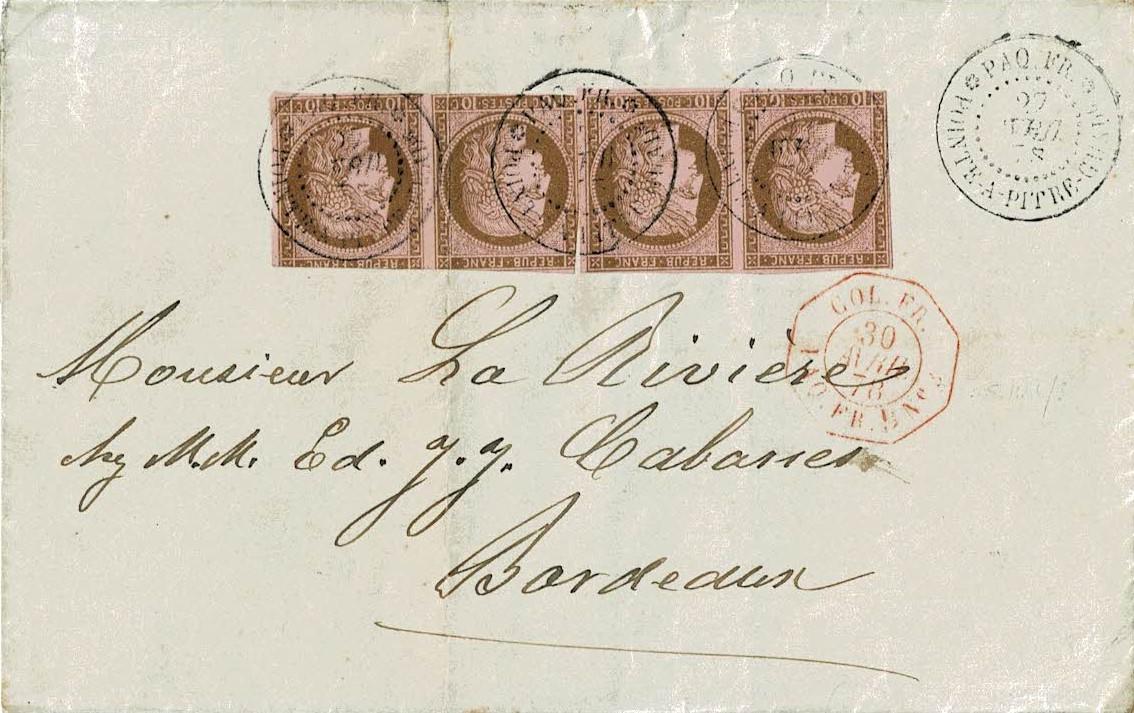 PAQ. FR.
27
AVRIL
POINTE-A-PITRE
10 C. POSTES 10 C
REPUB. FRANC.
10 C. POSTES 10 C
REPUB. FRANC.
10 C. POSTES 10 C
REPUB. FRANC.
10 C. POSTES 10 C
REPUB. FRANC.
COL. FR.
30
AVRIL
FR.
Monsieur La Rivière
chez M.M. Ed. J. J. Cabanes
Bordeaux